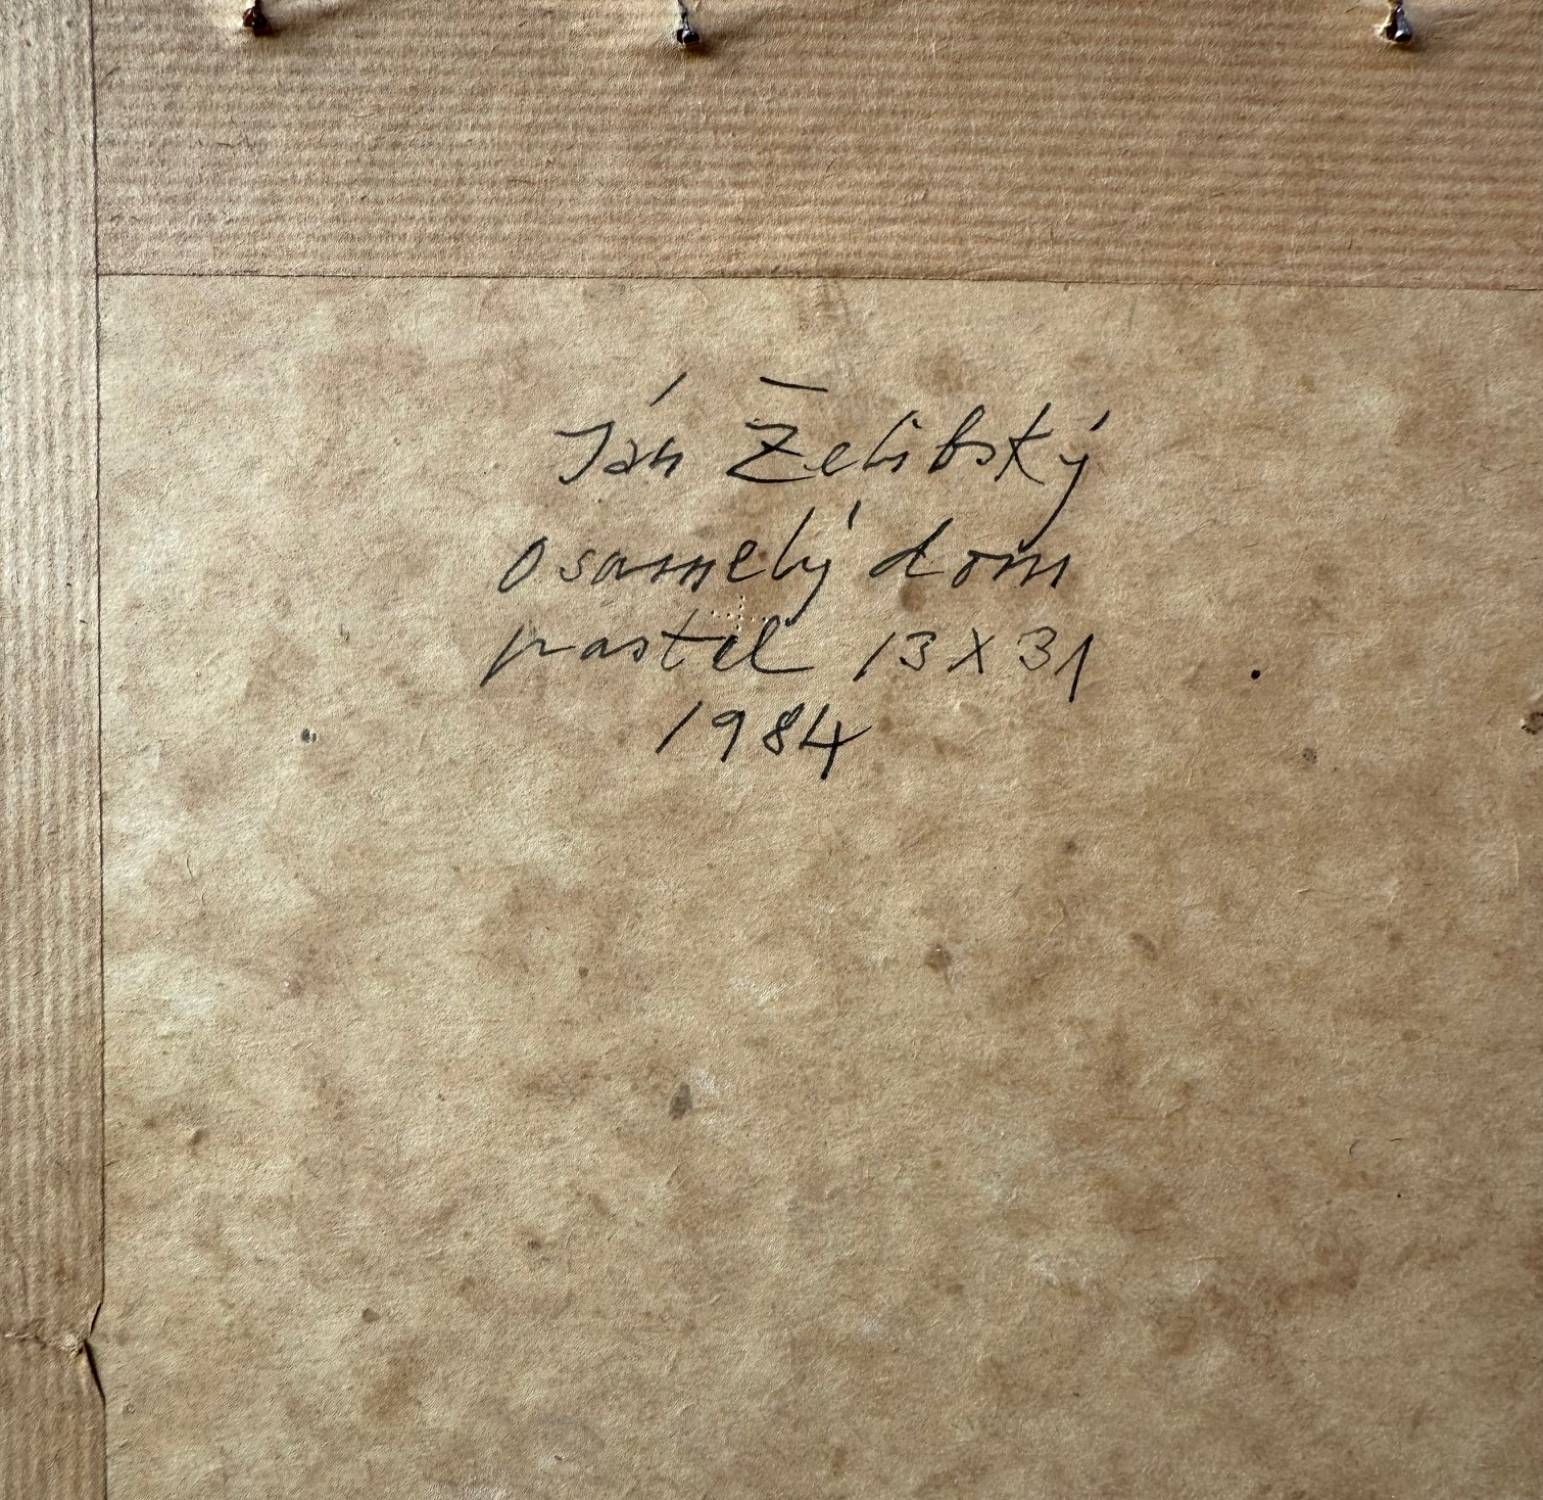 Ján Želibský
osamelý dom
pastel 13 X 31
1984